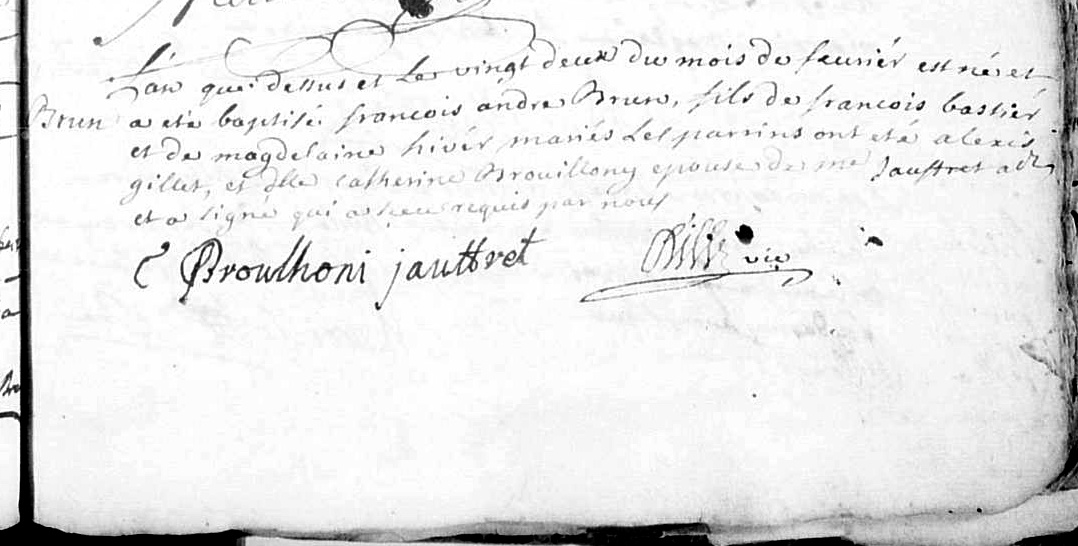 L'an que dessus et Le vingt deux du mois de feurier est né et
Brun a eté baptisé françois andre Brun, fils de françois bastier
et de magdelaine hiver mariés Les parrins ont eté alexis
gillet, et dlle catherine Brouillony epouse de me Jauffret adt
et a signé qui a sceu requis par nous
C Broulhoni jauttret vic